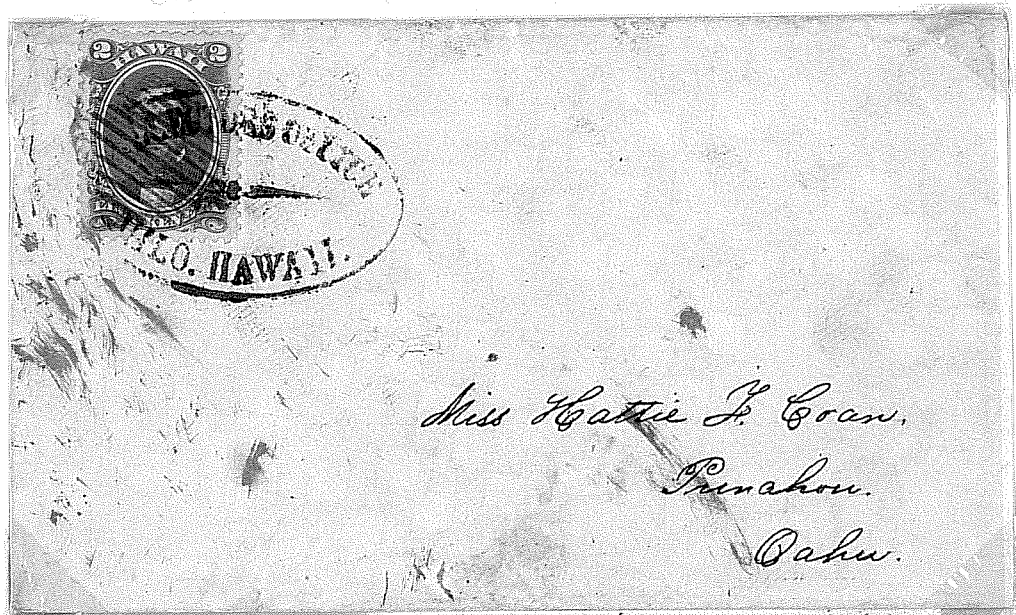 2 HAWAII 2
OFFICE
HILO. HAWAII.
Miss Hattie F. Coan.
Punahou.
Oahu.